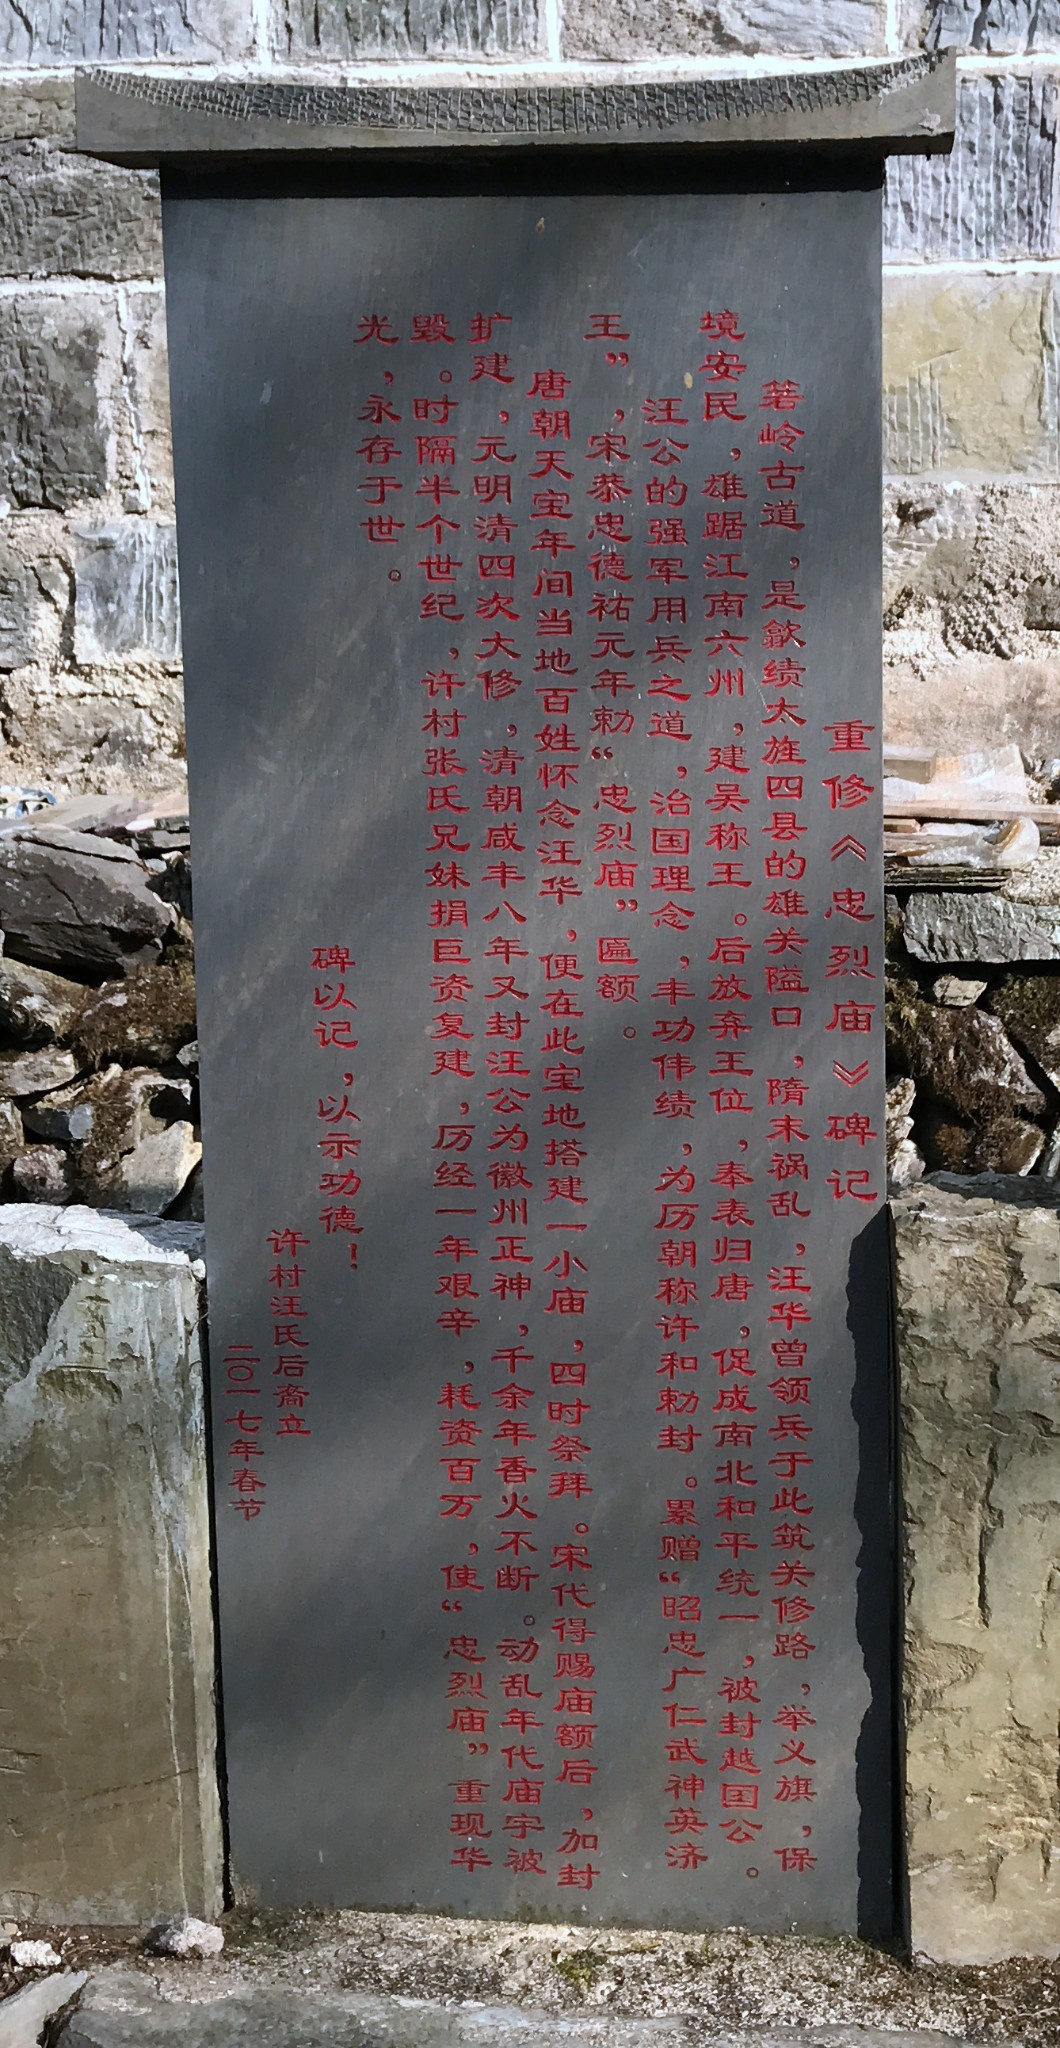 重修《忠烈庙》碑记
箬岭古道，是歙绩太旌四县的雄关隘口，隋末祸乱，汪华曾领兵于此筑关修路，举义旗，保
境安民，雄踞江南六州，建吴称王。后放弃王位，奉表归唐，促成南北和平统一，被封越国公。
汪公的强军用兵之道，治国理念，丰功伟绩，为历朝称许和勅封。累赠“昭忠广仁武神英济
王”，宋恭忠德祐元年勅“忠烈庙”匾额。
唐朝天宝年间当地百姓怀念汪华，便在此宝地搭建一小庙，四时祭拜。宋代得赐庙额后，加封
扩建，元明清四次大修，清朝咸丰八年又封汪公为徽州正神，千余年香火不断。动乱年代庙宇被
毁。时隔半个世纪，许村张氏兄妹捐巨资复建，历经一年艰辛，耗资百万，使“忠烈庙”重现华
光，永存于世。
碑以记，以示功德！
许村汪氏后裔立
二〇一七年春节